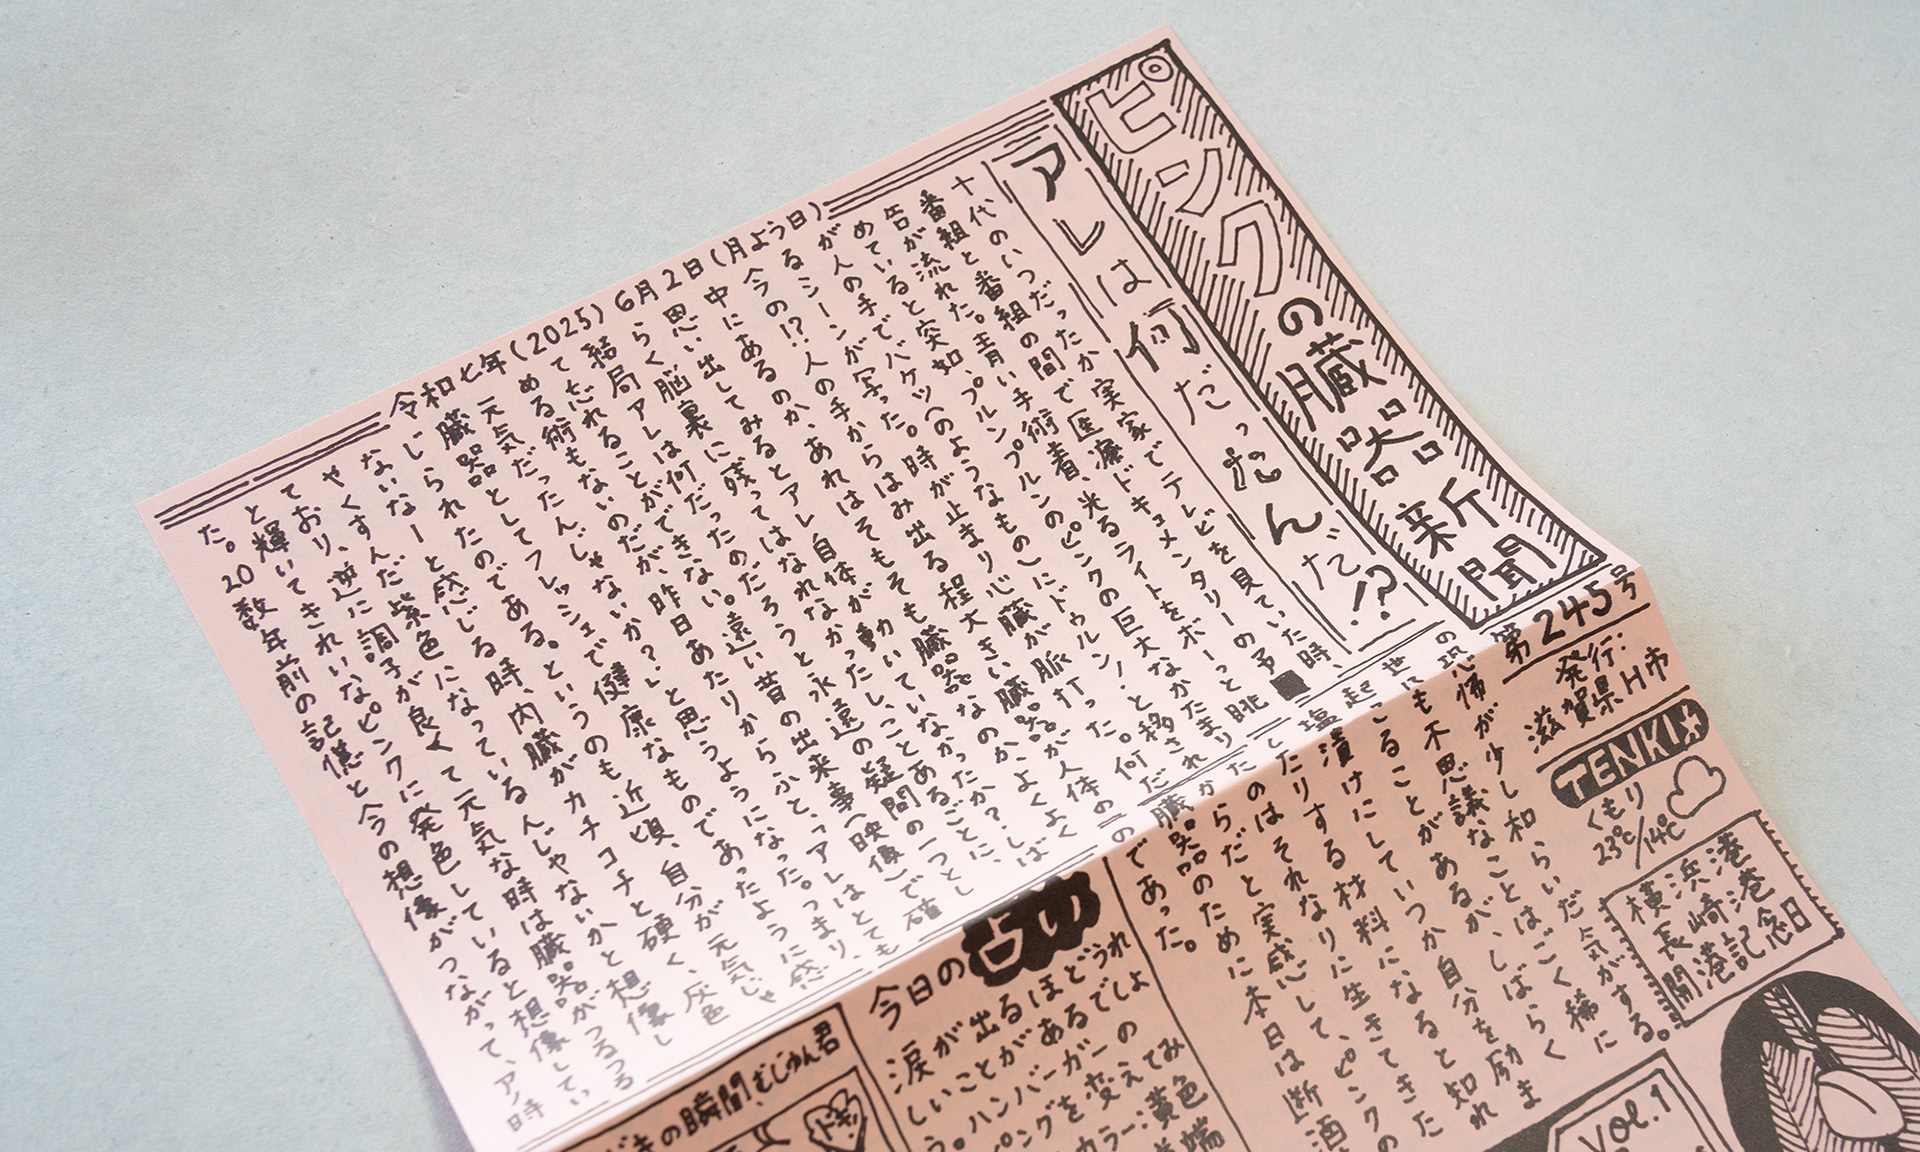 ピンクの臓器新聞
第245号
発行:
滋賀県H市
TENKI
くもり
23℃/14℃
横浜港
長崎港
開港記念日
令和七年(2025)6月2日(月よう日)
アレは何だったんだ!?
十代のいつだったか実家でテレビを見ていた時、
番組と番組の間で医療ドキュメンタリーの予
告が流れた。青い手術着、光るライトをボーっと眺
めていると突如、プルンプルンのピンクの巨大なかたまり
が人の手でバケツへ(のようなもの)にドゥルン!と移され
るシーンが写った。時が止まり心臓が脈打った。何だ
今の!?人の手からはみ出る程大きい臓器が人体の
中にあるのか、あれはそもそも臓器なのか、よくよく
思い出してみるとアレ自体が動いていなかったか?しば
らく脳裏に残ってはなれなかったし、ことあるごとに、
結局アレは何だったのだろうと永遠の疑問の一つとし
て忘れることができない。遠い昔の出来事(映像)で確
める術もないのだが、昨日あたりからふと、「アレはとても
元気だったんじゃないか?」と思うようになった。つまり、
臓器としてフレッシュで健康なものであったように感
じられたのである。というのも近頃、自分が元気じゃ
ないなーと感じる時、内臓がカチコチと硬く、灰色
やくすんだ紫色になっているんじゃないかと想像し
ており、逆に調子が良くて元気な時は臓器がつるつる
と輝いてきれいなピンクに発色していると想像してい
た。20数年前の記憶と今の想像がつながって、アノ時
の恐怖が少し和らいだ気がする。
も不思議なことはごく稀に
起こることがあるが、しばらく
塩漬けにしていつか自分を励ま
したりする材料になると知れ
たのはそれなりに生きてきた
からだと実感して、ピンクの
臓器のために本日は断酒
のであった。
今日の占い
涙が出るほどうれ
しいことがあるでしょ
う。ハンバーガーの
を変えてみ
カラー:黄色
の瞬間、むじゅん君
ドキッ
VOL.1